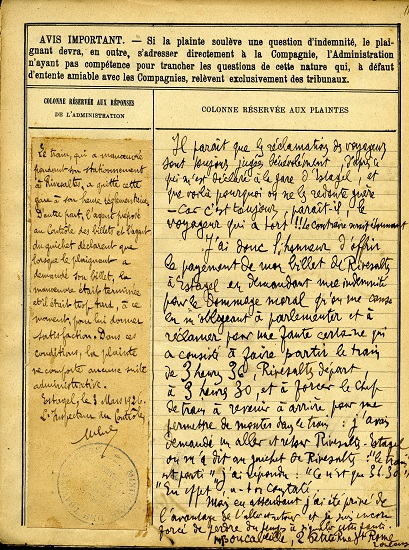 AVIS IMPORTANT. — Si la plainte soulève une question d'indemnité, le plai-
gnant devra, en outre, s'adresser directement à la Compagnie, l'Administration
n'ayant pas compétence pour trancher les questions de cette nature qui, à défaut
d'entente amiable avec les Compagnies, relèvent exclusivement des tribunaux.
COLONNE RÉSERVÉE AUX RÉPONSES
DE L'ADMINISTRATION
Le train, qui a manœuvré
pendant son stationnement
à Rivesaltes, a quitté cette
gare à son heure réglementaire.
D'autre part, l'agent préposé
au Contrôle des billets et l'agent
du guichet déclarent que
lorsque le plaignant a
demandé son billet, la
manœuvre était terminée
et il était trop tard, à ce
moment, pour lui donner
satisfaction. Dans ces
conditions, la plainte
ne comporte aucune suite
administrative.
Estagel, le 3 Mars 1926.
L'Inspecteur du Contrôle,
COLONNE RÉSERVÉE AUX PLAINTES
Il paraît que les réclamations de voyageurs
sont toujours jugées défavorablement, d'après ce
qui m'est déclaré à la gare d'Estagel, et
que voilà pourquoi on ne les redoute guère
— Car c'est toujours, paraît-il, le
voyageur qui a tort !! Le contraire serait étonnant
J'ai donc l'honneur d'offrir
le payement de mon billet de Rivesaltes
à Estagel en demandant une indemnité
pour le dommage moral qu'on me cause
en m'obligeant à parlementer et à
réclamer pour une faute certaine qui
a consisté à faire partir le train
de 3 heures 36, Rivesaltes départ,
à 3 heures 30, et à forcer le chef
de train à revenir à arrière pour me
permettre de monter dans le train : j'avais
demandé un aller et retour Rivesaltes-Estagel
on m'a dit au guichet de Rivesaltes : "le train
est parti" j'ai répondu : "Ce n'est que 3h.30"
"En effet", a-t-on constaté.
Mais en attendant j'ai été privé de
l'avantage de l'aller et retour et je suis encore
forcé de perdre du temps à